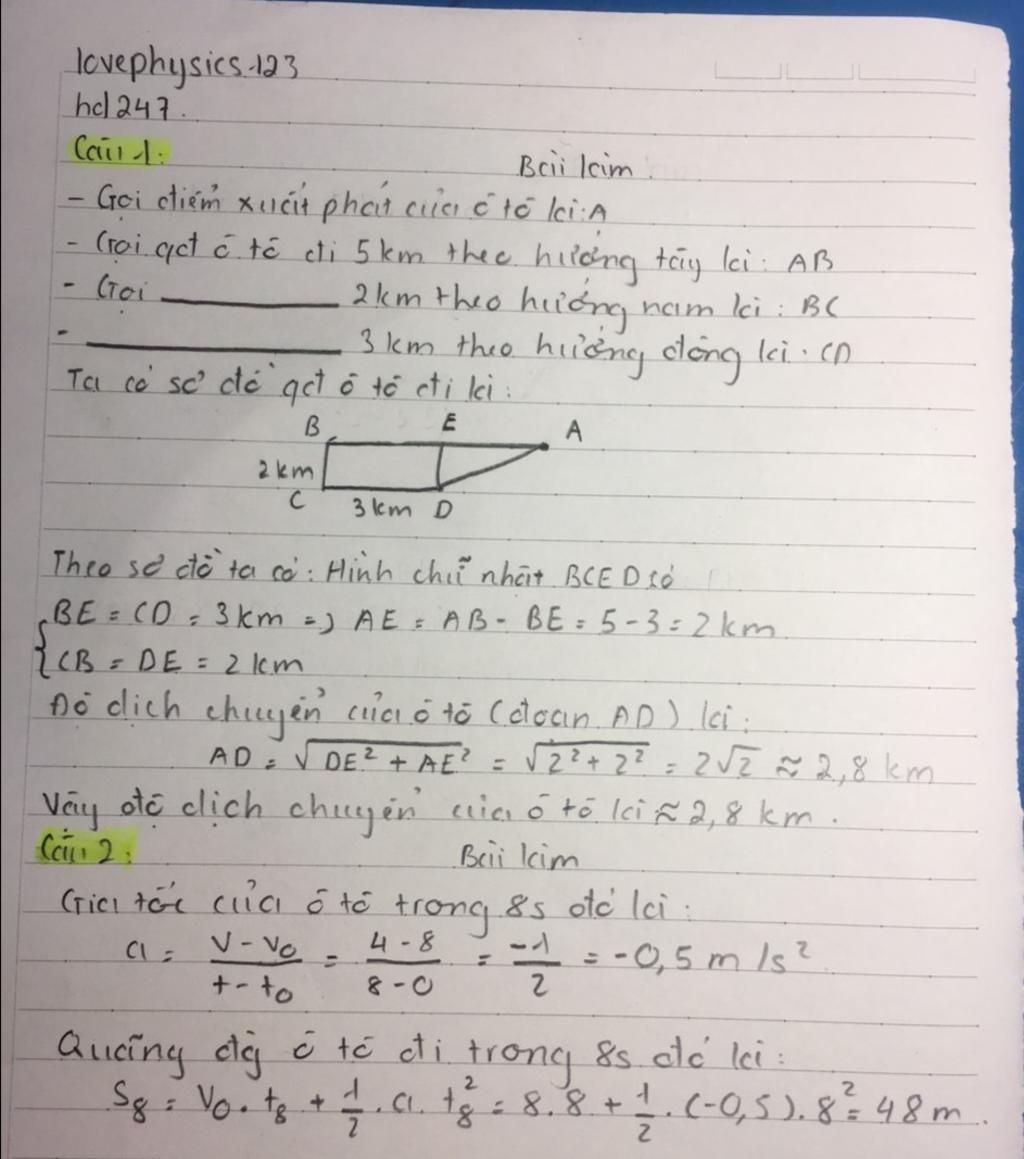 lovephysics.123
hcl247.
Câu 1:
Bài làm:
- Gọi điểm xuất phát của ô tô là: A
- Gọi qđt ô tô đi 5km theo hướng tây là: AB
- Gọi ——— 2km theo hướng nam là: BC
- ——— 3km theo hướng đông là: CD
Ta có sơ đồ qđt ô tô đi là:
B E A
2km
C 3km D
Theo sơ đồ ta có: Hình chữ nhật BCED có
{ BE = CD = 3km => AE = AB - BE = 5 - 3 = 2km
CB = DE = 2km
Độ dịch chuyển của ô tô (đoạn AD) là:
AD = √(DE² + AE²) = √(2² + 2²) = 2√2 ≈ 2,8 km
Vậy độ dịch chuyển của ô tô là ≈ 2,8 km.
Câu 2:
Bài làm
Gia tốc của ô tô trong 8s đó là:
a = (v - v₀)/(t - t₀) = (4 - 8)/(8 - 0) = -1/2 = -0,5 m/s²
Quãng đg ô tô đi trong 8s đó là:
S₈ = v₀.t₈ + 1/2.a.t₈² = 8.8 + 1/2.(-0,5).8² = 48m.